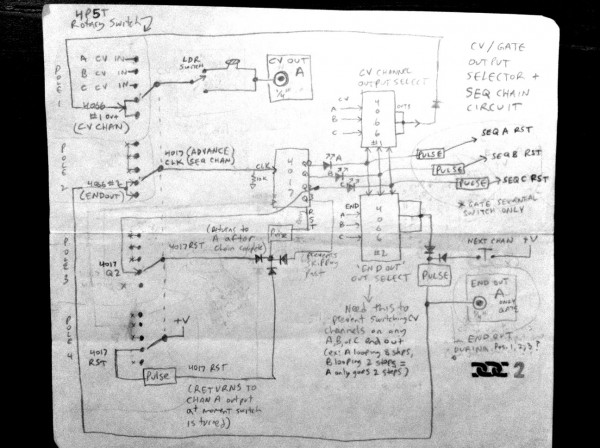 4P5T
Rotary Switch
A CV IN
B CV IN
C CV IN
4066
#1 OUT
(CV CHAN)
POLE 1
LDR
SWITCH
CV OUT
A
1/4"
CV CHANNEL
OUTPUT SELECT
CV
A
B
C
4
0
6
6
#1
OUTS
CV/GATE
OUTPUT
SELECTOR +
SEQ CHAIN
CIRCUIT
POLE 2
4066 #2
(END OUT)
4017 (ADVANCE)
CLK (SEQ CHAN)
CLK
10K
4
0
1
7
RST
A
B
C
PULSE
SEQ A RST
PULSE
SEQ B RST
PULSE
SEQ C RST
* GATE SEQUENTIAL
SWITCH ONLY
END
A
B
C
4
0
6
6
#2
"END OUT"
OUT SELECT
POLE 3
4017
Q2
4017 RST
(RETURNS TO
A AFTER
CHAIN COMPLETE)
NEXT CHAN
+V
PULSE
END OUT
A
ONLY
GATE
1/4"
END OUT
DURING POS. 1, 2, 3?
Need this to
prevent switching CV
channels on any
A, B, or C end out
(ex: A looping 8 steps,
B looping 2 steps =
A only goes 2 steps)
POLE 4
+V
4017
RST
Pulse
4017 RST
(RETURNS TO
CHAN A output
at moment switch
is turned)
2